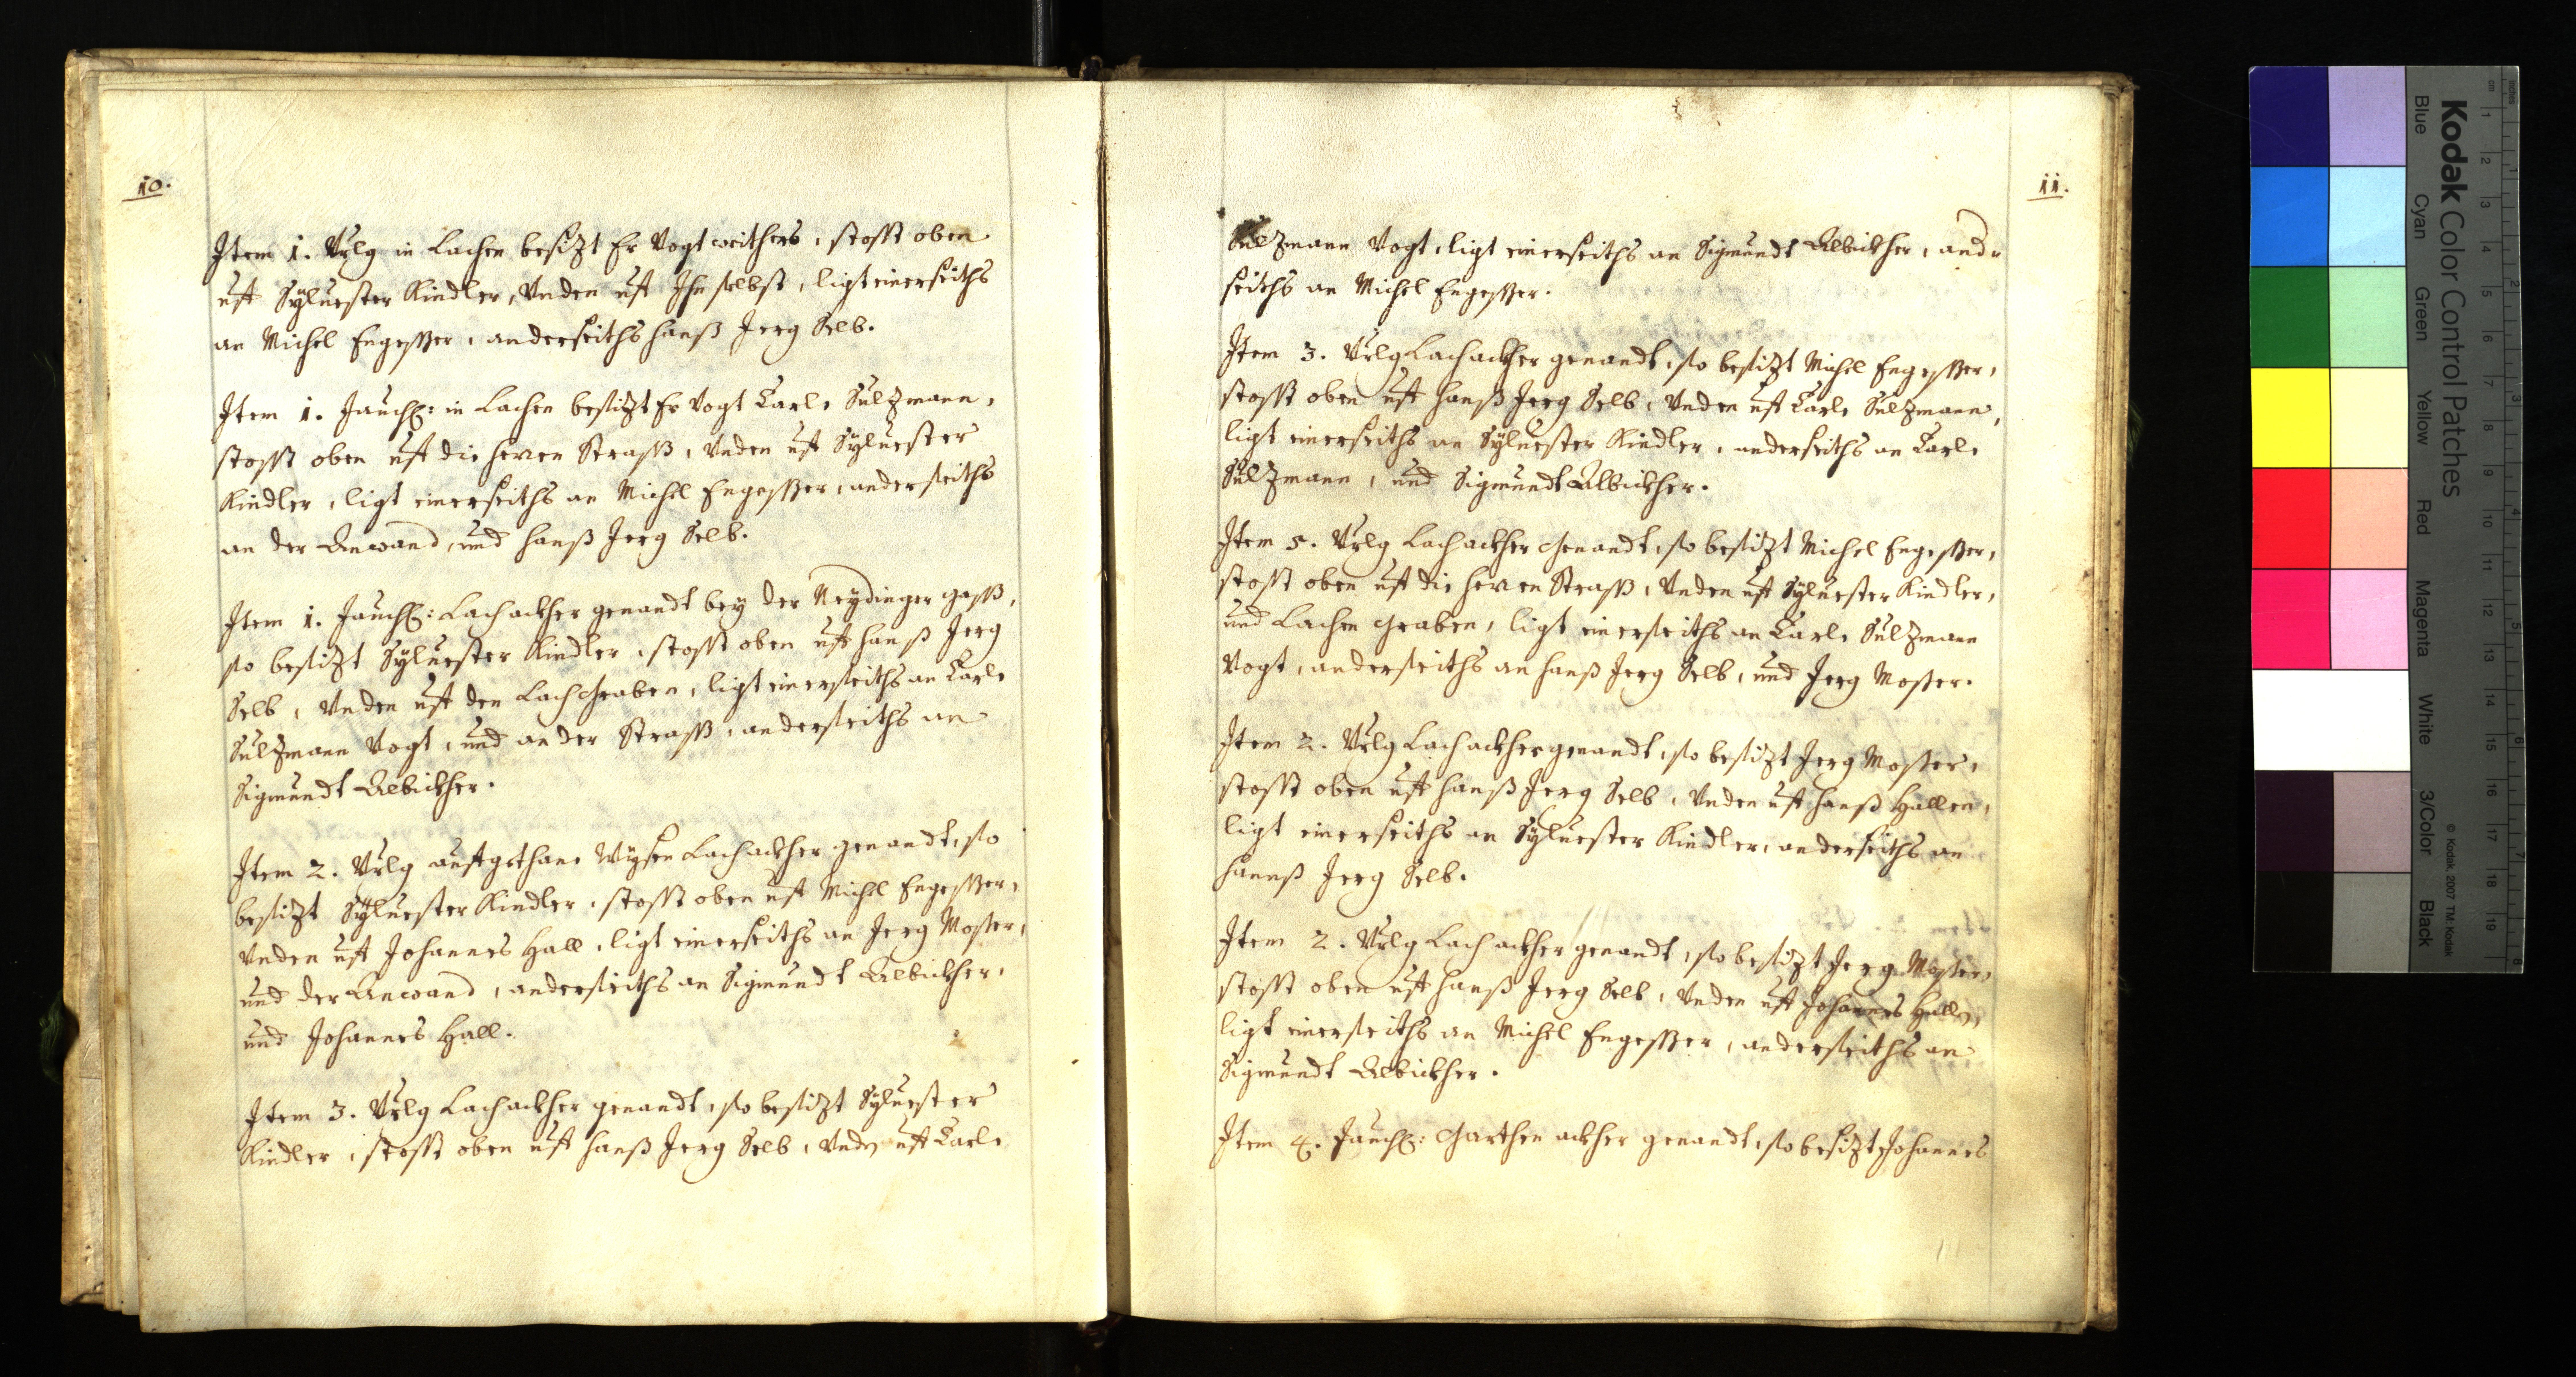 10.
Item 1. Vrlg in Lachen besizt Er Vogt weithers, stosst oben
uff Syluester Kindler, Vnden uff Ihn selbst, ligt einerseiths
an Michel Engesser, anderseiths hanß Jerg Selb.
Item 1. Jauch: in Lachen besizt Er Vogt Carle Sulzmann,
stosst oben uff die herren Strass, Vnden uff Syluester
Kindler, ligt einerseiths an Michel Engesser, anderseiths
an der Anwand, und hanß Jerg Selb.
Item 1. Jauch: Lachackher genandt bey der Neydinger gass,
so besizt Syluester Kindler, stosst oben uff hanß Jerg
Selb, Vnden uff den Lachgraben, ligt einerseiths an Carle
Sulzmann Vogt, und an der Strass, anderseiths an
Sigmundt Albickher.
Item 2. Vrlg auffgethane Wysen Lachackher genandt, so
besizt Syluester Kindler, stosst oben uff Michel Engesser,
Vnden uff Johannes Hall, ligt einerseiths an Jerg Moster,
und der Anwand, anderseiths an Sigmundt Albickher,
und Johannes Hall.
Item 3. Vrlg Lachackher genandt, so besizt Syluester
Kindler, stosst oben uff hanß Jerg Selb, Vnden uff Carle
11.
Sulzmann Vogt, ligt einerseiths an Sigmundt Albickher, ander
seiths an Michel Engesser.
Item 3. Vrlg Lachackher genandt, so besizt Michel Engesser,
stosst oben uff hanß Jerg Selb, Vnden uff Carle Sulzmann,
ligt einerseiths an Syluester Kindler, anderseiths an Carle
Sulzmann, und Sigmundt Albickher.
Item 5. Vrlg Lachackher Genandt, so besizt Michel Engesser,
stosst oben uff die herren Strass, Vnden uff Syluester Kindler,
und Lachen Graben, ligt einerseiths an Carle Sulzmann
Vogt, anderseiths an hanß Jerg Selb, und Jerg Moster.
Item 2. Vrlg Lachackher genandt, so besizt Jerg Moster,
stosst oben uff hanß Jerg Selb, Vnden uff hanß Hallen,
ligt einerseiths an Syluester Kindler, anderseiths an
hannß Jerg Selb.
Item 2. Vrlg Lachackher genandt, so besizt Jerg Moster,
stosst oben uff hanß Jerg Selb, Vnden uff Johannes Hallen,
ligt einerseiths an Michel Engesser, anderseiths an
Sigmundt Albickher.
Item 4. Jauch: Garthen ackher genandt, so besizt Johannes
Kodak Color Control Patches
Blue Cyan Green Yellow Red Magenta White 3/Color Black
© Kodak, 2007 TM: Kodak